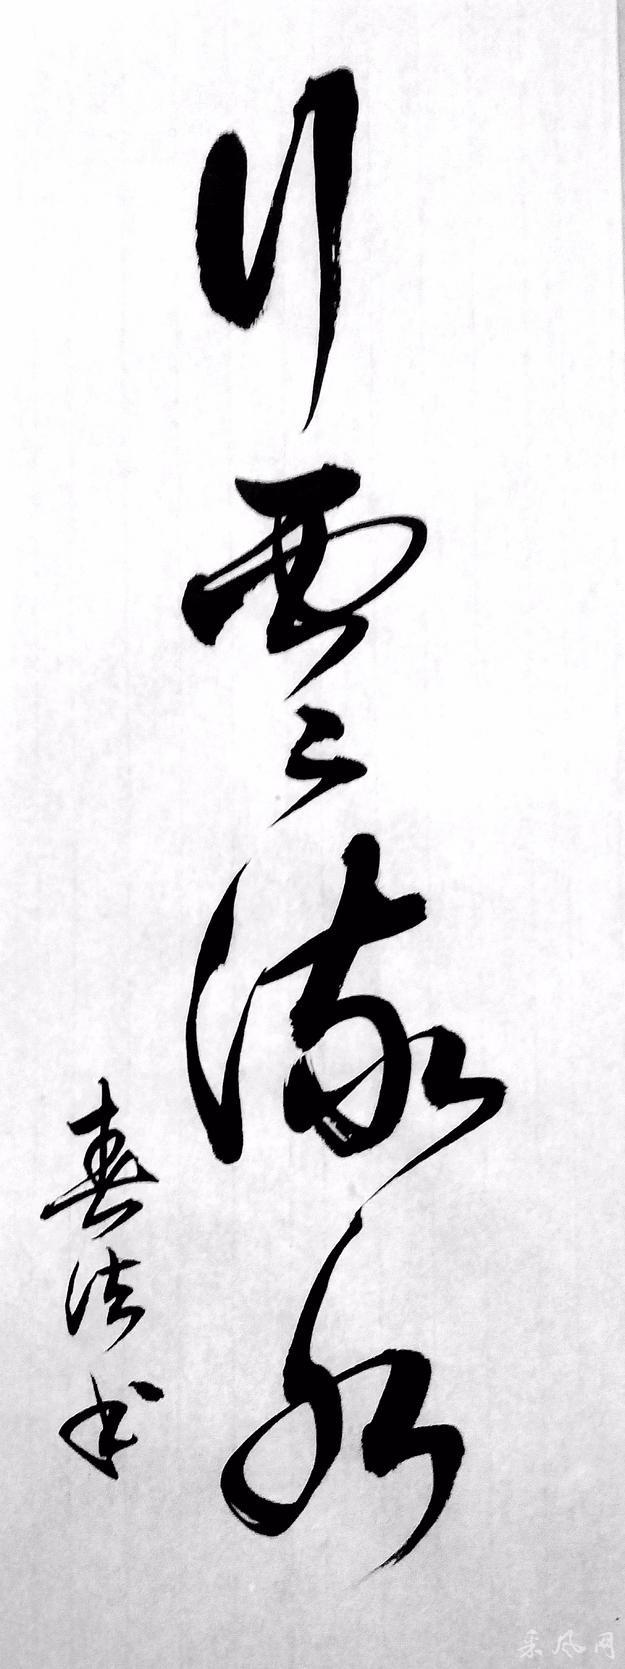 行雲流水
春法书
采风网